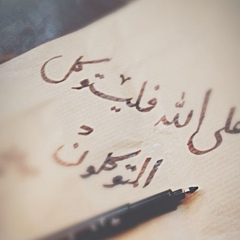 على الله فليتوكل
المتوكلون